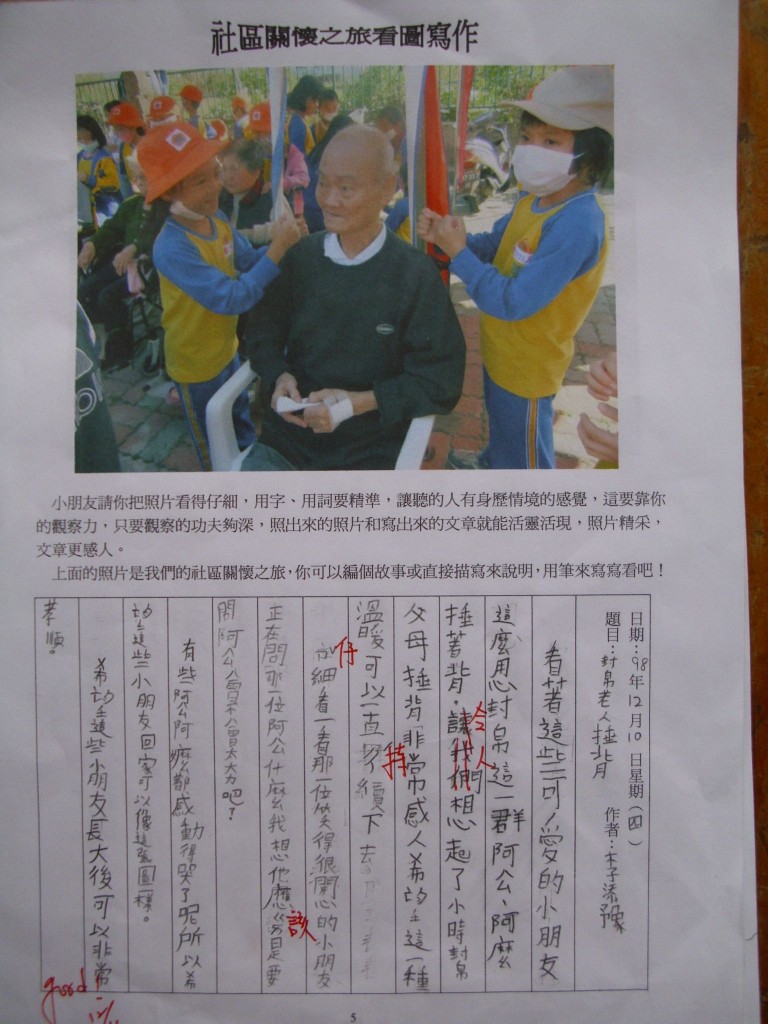 社區關懷之旅看圖寫作
小朋友請你把照片看得仔細，用字、用詞要精準，讓聽的人有身歷情境的感覺，這要靠你
的觀察力，只要觀察的功夫夠深，照出來的照片和寫出來的文章就能活靈活現，照片精采，
文章更感人。
上面的照片是我們的社區關懷之旅，你可以編個故事或直接描寫來說明，用筆來寫寫看吧！
日期：98年12月10日星期（四）
題目：封帛老人捶背 作者：
看著這些可愛的小朋友
這麼用心封帛這一群阿公、阿麼
捶著背，讓我們想起了小時封帛
令人
父母捶背非常感人希望這一種
溫暖可以一直 續下去。
持
細看一看那一位笑得很開心的小朋友
仔
正在問那一位阿公什麼我想他應 是要
該
問阿公會不會太大力吧？
有些阿公阿麻都感動得哭了呢所以希
望這些小朋友回家可以像這張圖一樣。
希望這些小朋友長大後可以非常
孝順。
good!
5